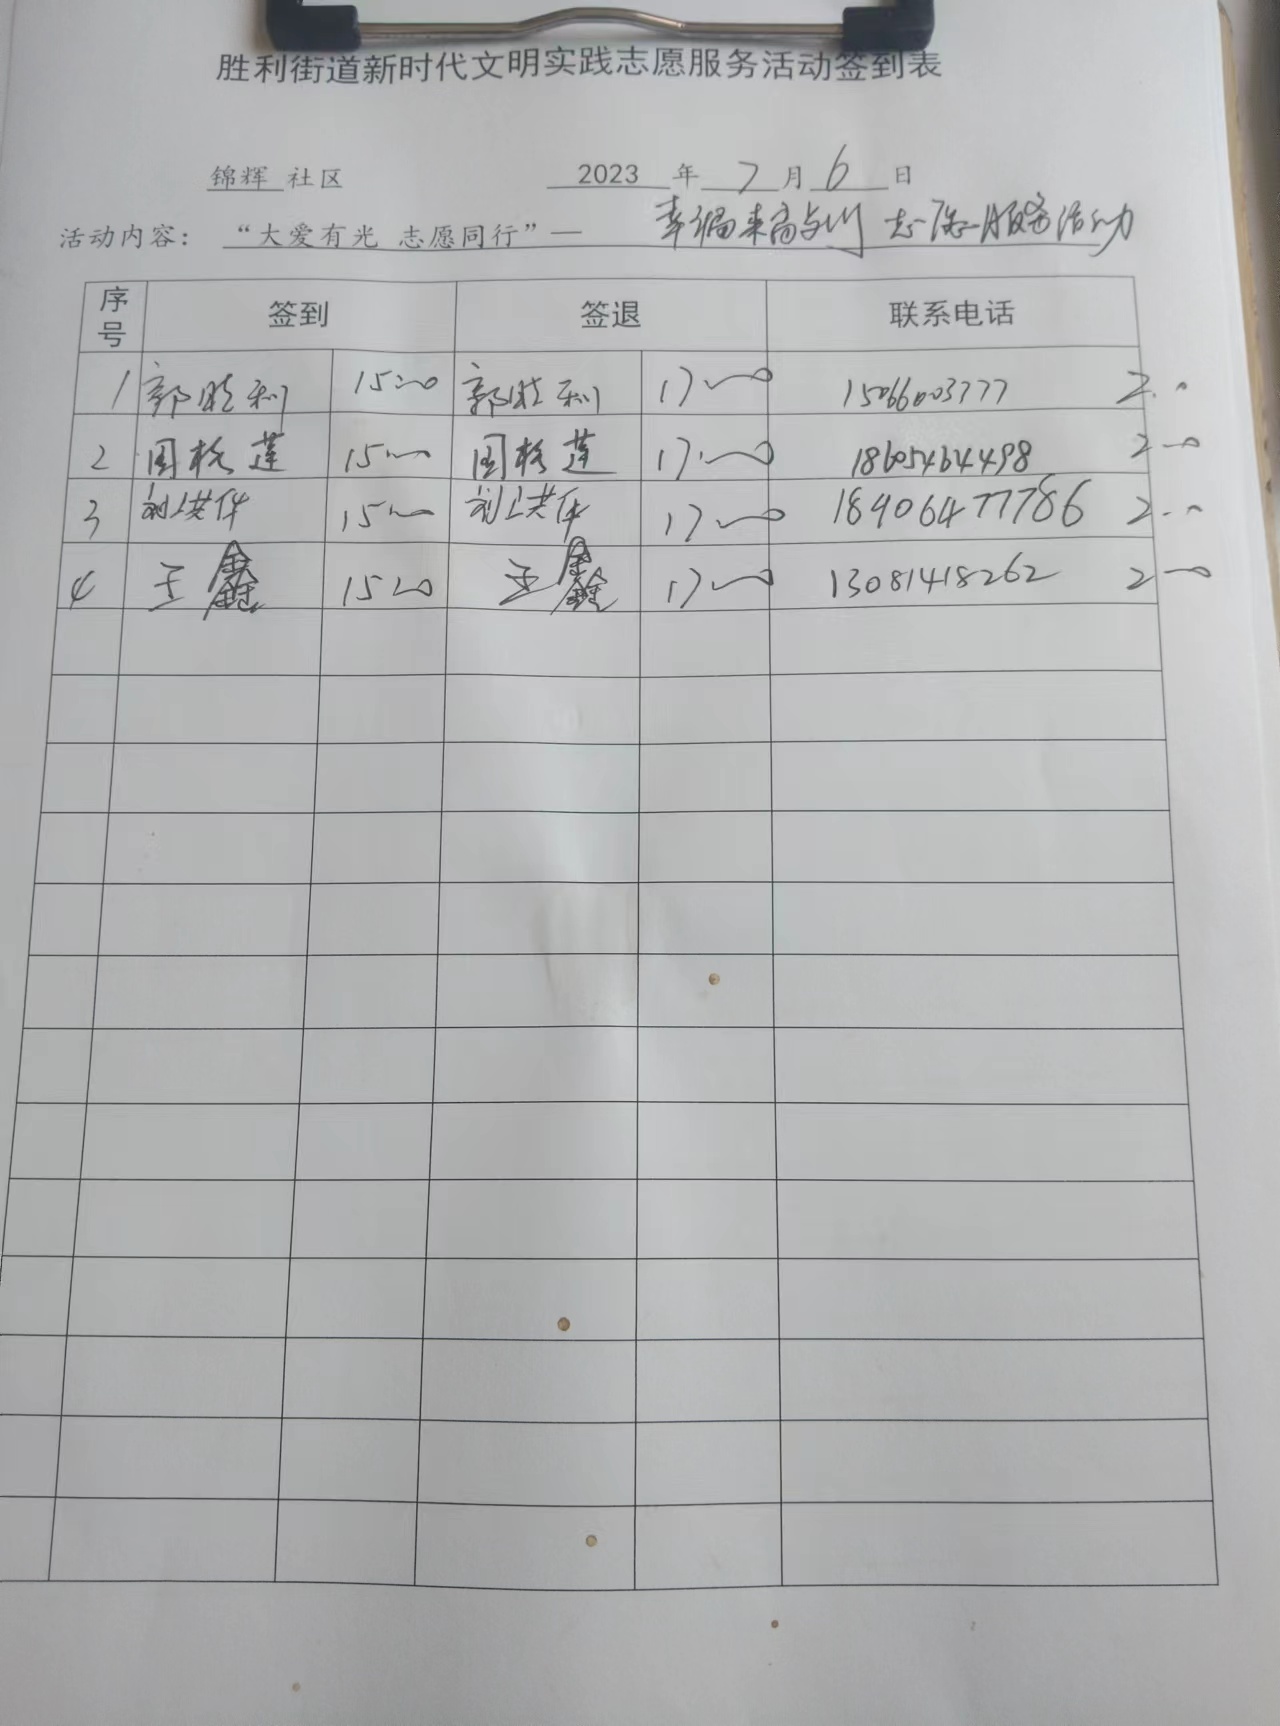 胜利街道新时代文明实践志愿服务活动签到表
锦辉 社区 2023 年 7 月 6 日
活动内容： “大爱有光 志愿同行”— 幸福来 志愿服务活动
序号 签到 签退 联系电话
1 郭胜利 15:00 郭胜利 17:00 15066003777 2:00
2 周桂莲 15:00 周桂莲 17:00 18605464498 2:00
3 15:00 17:00 18906477786 2:00
4 王鑫 15:00 王鑫 17:00 13081418262 2:00